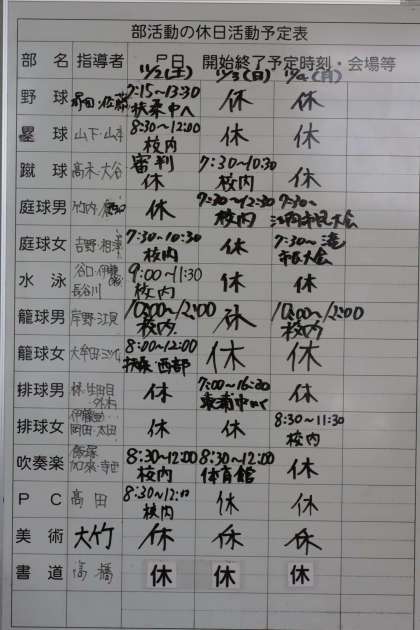 部活動の休日活動予定表
部 名 指導者 月日 開始終了予定時刻・会場等
11/2(土) 11/3(日) 11/4(月)
野 球 佐藤 7:15〜13:30 休 休
扶桑中へ
塁 球 山下・山本 8:30〜12:00 休 休
校内
蹴 球 高木・大谷 審判 7:30〜10:30 休
休 校内
庭球男 竹内 休 7:30〜12:30 7:30〜
校内 市民大会
庭球女 吉野・相澤 7:30〜10:30 休 7:30〜滝
校内 市民大会
水 泳 谷口・伊藤 9:00〜11:30 休 休
長谷川 校内
籠球男 岸野・江見 10:00〜12:00 休 10:00〜12:00
校内 校内
籠球女 大牟田・三ツ石 8:00〜12:00 休 休
扶桑・西部
排球男 林・生田目 休 7:00〜16:30 休
外村 東浦中
排球女 伊藤 休 休 8:30〜11:30
岡田・太田 校内
吹奏楽 飯塚 8:30〜12:00 8:30〜12:00 休
加来・寺西 校内 体育館
P C 高田 8:30〜12:00 休 休
校内
美 術 大竹 休 休 休
書 道 高橋 休 休 休